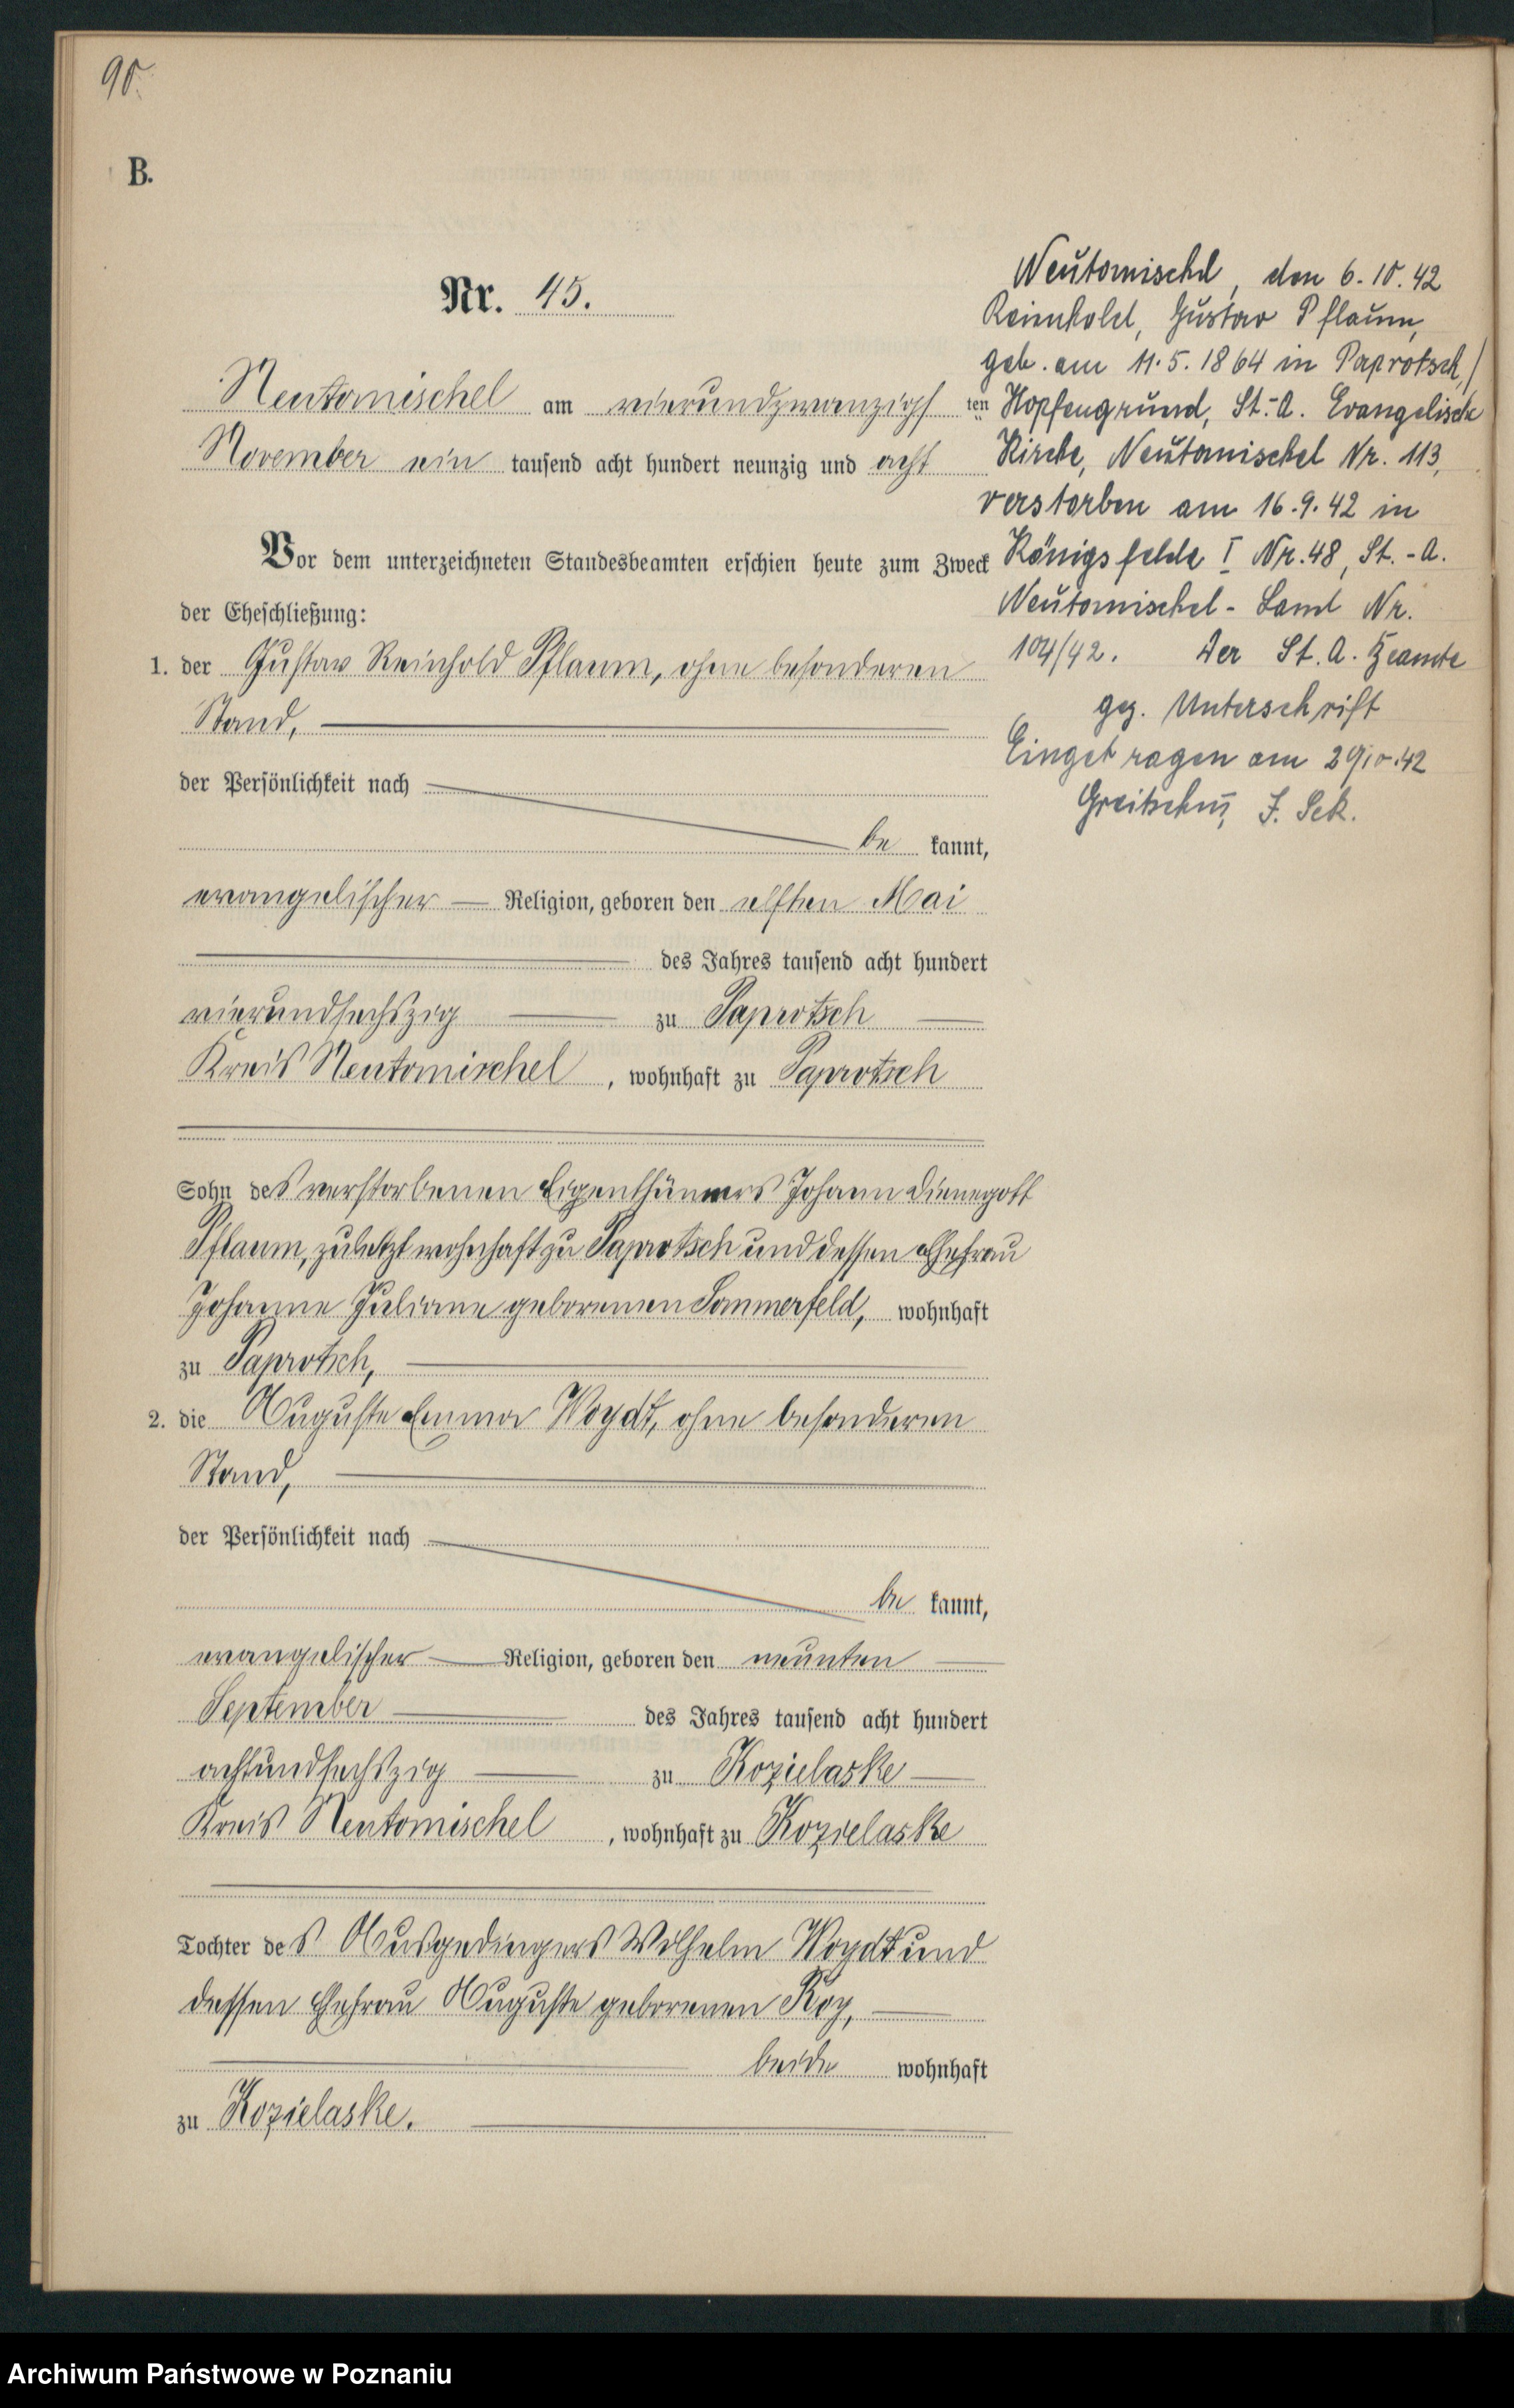 90.
B.
Nr. 45.
Neutomischel am vierundzwanzigs ten
November ein tausend acht hundert neunzig und acht
Vor dem unterzeichneten Standesbeamten erschien heute zum Zweck
der Eheschließung:
1. der Gustav Reinhold Pflaum, ohne besonderen
Stand,
der Persönlichkeit nach
be kannt,
evangelischer Religion, geboren den elften Mai
des Jahres tausend acht hundert
vierundsechszig zu Paprotsch
Kreis Neutomischel, wohnhaft zu Paprotsch
Sohn des verstorbenen Eigenthümers Johann Dienegott
Pflaum, zuletzt wohnhaft zu Paprotsch und dessen Ehefrau
Johanne Juliane geborenen Sommerfeld, wohnhaft
zu Paprotsch,
2. die Auguste Emma Woydt, ohne besonderen
Stand,
der Persönlichkeit nach
be kannt,
evangelischer Religion, geboren den neunten
September des Jahres tausend acht hundert
achtundsechszig zu Kozielaske
Kreis Neutomischel, wohnhaft zu Kozielaske
Tochter des Ausgedingers Wilhelm Woydt und
dessen Ehefrau Auguste geborenen Roy,
beide wohnhaft
zu Kozielaske.
Neutomischel, den 6.10.42
Reinhold, Gustav Pflaum,
geb. am 11.5.1864 in Paprotsch,/
Hopfengrund, St.-A. Evangelische
Kirche, Neutomischel Nr. 113,
verstorben am 16.9.42 in
Königsfelde I Nr. 48, St.-A.
Neutomischel-Land Nr.
104/42. Der St. A. Beamte
gez. Unterschrift
Eingetragen am 29.10.42
J. Sek.
Archiwum Państwowe w Poznaniu